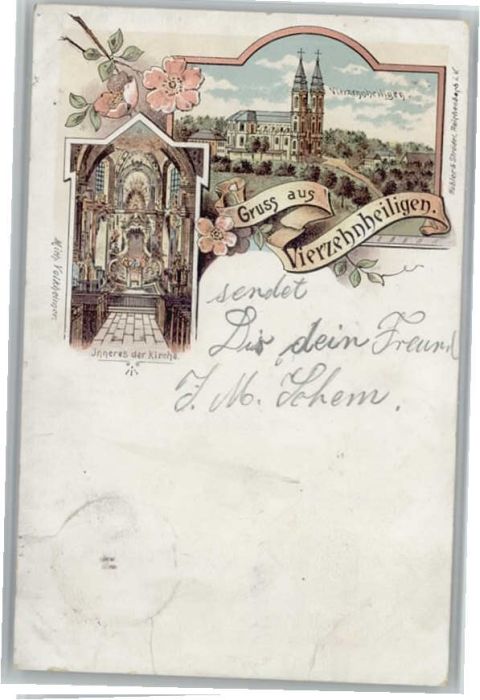 Vierzehnheiligen.
Gruss aus
Vierzehnheiligen.
Inneres der Kirche.
sendet
Dir dein Freund
J. M. Schem.